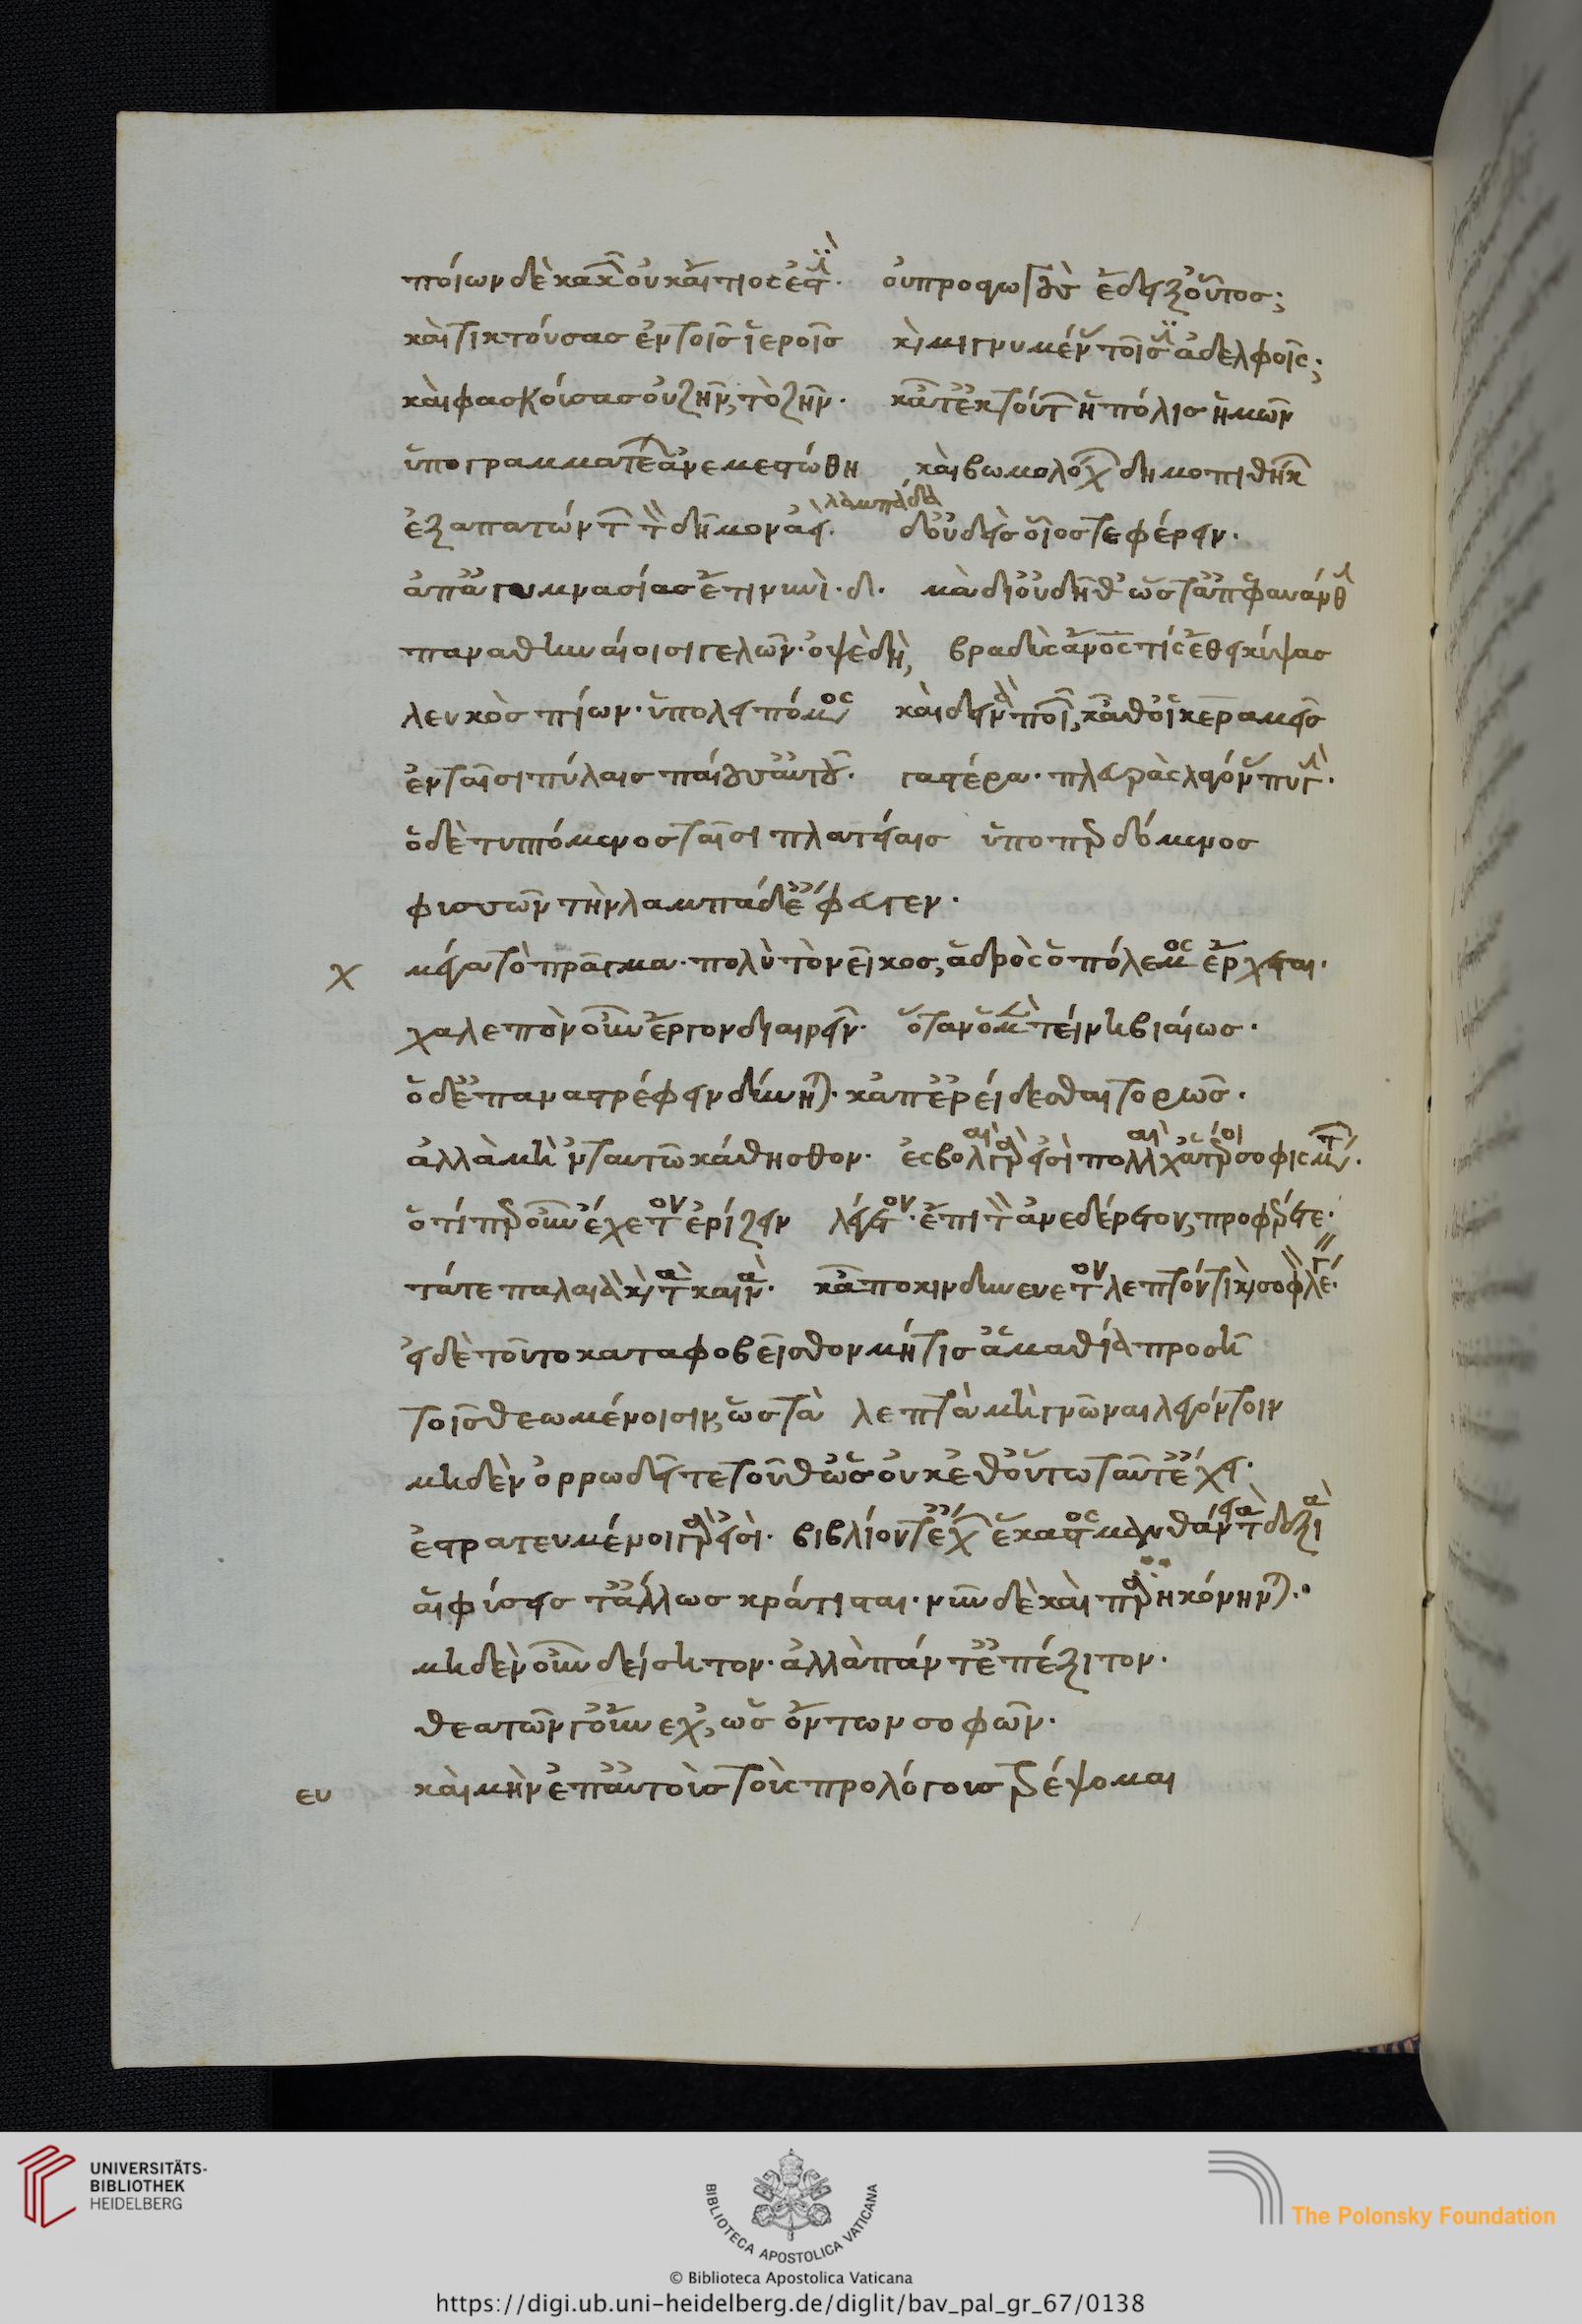 ποίων δὲ κακῶν οὐκ αἴτιός ἐστι· οὐ προαγωγοὺς ἔδειξ' οὗτος;
καὶ τικτούσας ἐν τοῖς ἱεροῖς καὶ μιγνυμένας τοῖσιν ἀδελφοῖς;
καὶ φασκούσας οὐ ζῆν, τὸ ζῆν· κᾆτ' ἐκ τούτων ἡ πόλις ἡμῶν
ὑπογραμματέων ἀνεμεστώθη καὶ βωμολόχων δημοπιθήκων
ἐξαπατώντων τὸν δῆμον ἀεί· λαμπάδα δ' οὐδεὶς οἷός τε φέρειν·
ὑπ' ἀγυμνασίας ἔτι νυνί· δι. μὰ δί' οὐ δῆθ' ὥστ' ἀπαφαυάνθην
παναθηναίοισι γελῶν· ὅτε δὴ, βραδὺς ἄνος τίς ἔθει κύψας
λευκὸς πίων· ὑπολειπόμενος καὶ δεινὰ ποιῶν, κᾆθ' οἱ κεραμεῖς
ἐν ταῖσι πύλαις παίουσ' αὐτοῦ· γαστέρα· πλευρὰς λαγόνας πυγήν·
ὁ δὲ τυπτόμενος ταῖσι πλατείαις ὑποπερδόμενος
φυσῶν τὴν λαμπάδ' ἔφευγεν·
χ μέγα τὸ πρᾶγμα· πολὺ τὸ νεῖκος, ἁδρὸς ὁ πόλεμος ἔρχεται·
χαλεπὸν οὖν ἔργον διαιρεῖν· ὅταν ὁ μὲν τείνη βιαίως·
ὁ δ' ἐπαναστρέφειν δύνηται· κἀπερείδεσθαι τορῶς·
ἀλλὰ μὴ 'ν ταυτῶ κάθησθον· ἐσβολαὶ γὰρ εἰσὶ πολλαὶ χἄτεραι σοφισμάτων·
ὅ τί περ οὖν ἔχετον ἐρίζειν λέγετον· ἔπιτον ἀνεδέρεσθον, προφέρετε·
τά τε παλαιὰ καὶ τὰ καινά· κἀποκινδυνεύετον λεπτόν τι καὶ σοφὸν λέγειν·
εἰ δὲ τοῦτο καταφοβεῖσθον μή τις ἀμαθία προσῆ
τοῖς θεωμένοισιν, ὡς τὰ λεπτὰ μὴ γνῶναι λεγόντοιν
μηδὲν ὀρρωδεῖτε τοῦθ' ὡς οὐκ ἔθ' οὕτω ταῦτ' ἔχει·
ἐστρατευμένοι γὰρ εἰσὶ· βιβλίον τ' ἔχων ἕκαστος μανθάνει τὰ δεξιὰ
αἱ φύσεις τ' ἄλλως κράτισται· νῦν δὲ καὶ παρηκόνηνται·
μηδὲν οὖν δείσητον· ἀλλὰ πάντ' ἐπέξιτον·
θεατῶν γ' οὕνεχ', ὡς ὄντων σοφῶν·
ευ καὶ μὴν ἐπ' αὐτοὺς τοὺς προλόγους τρέψομαι
UNIVERSITÄTS-
BIBLIOTHEK
HEIDELBERG
BIBLIOTECA APOSTOLICA VATICANA
The Polonsky Foundation
© Biblioteca Apostolica Vaticana
https://digi.ub.uni-heidelberg.de/diglit/bav_pal_gr_67/0138